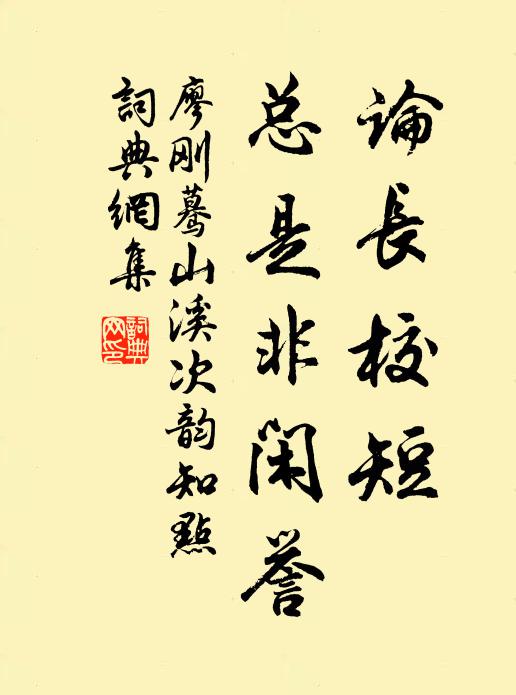 論長校短
总是非閑誉
廖刚驀山溪次韵知點
詞典網集
詞典网印